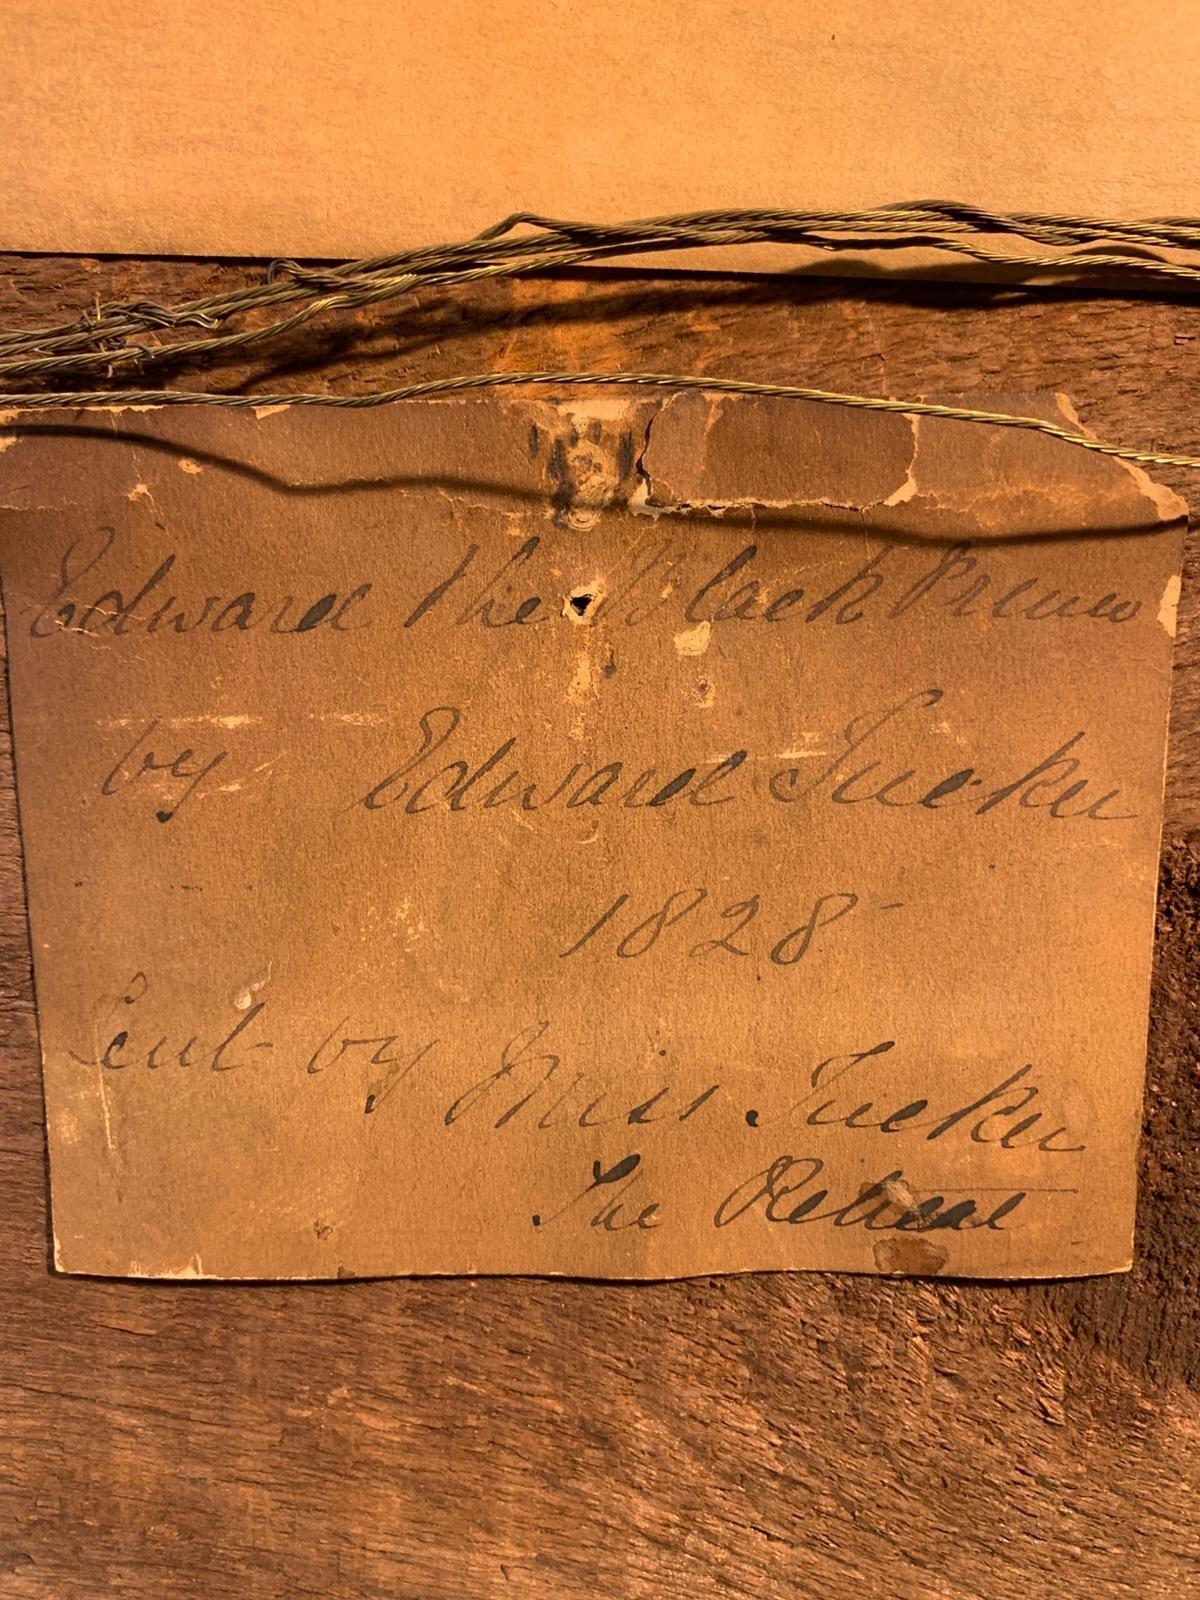 Edward the Black Prince
by Edward Tucker
1828
Lent by Miss Tucker
The Retreat